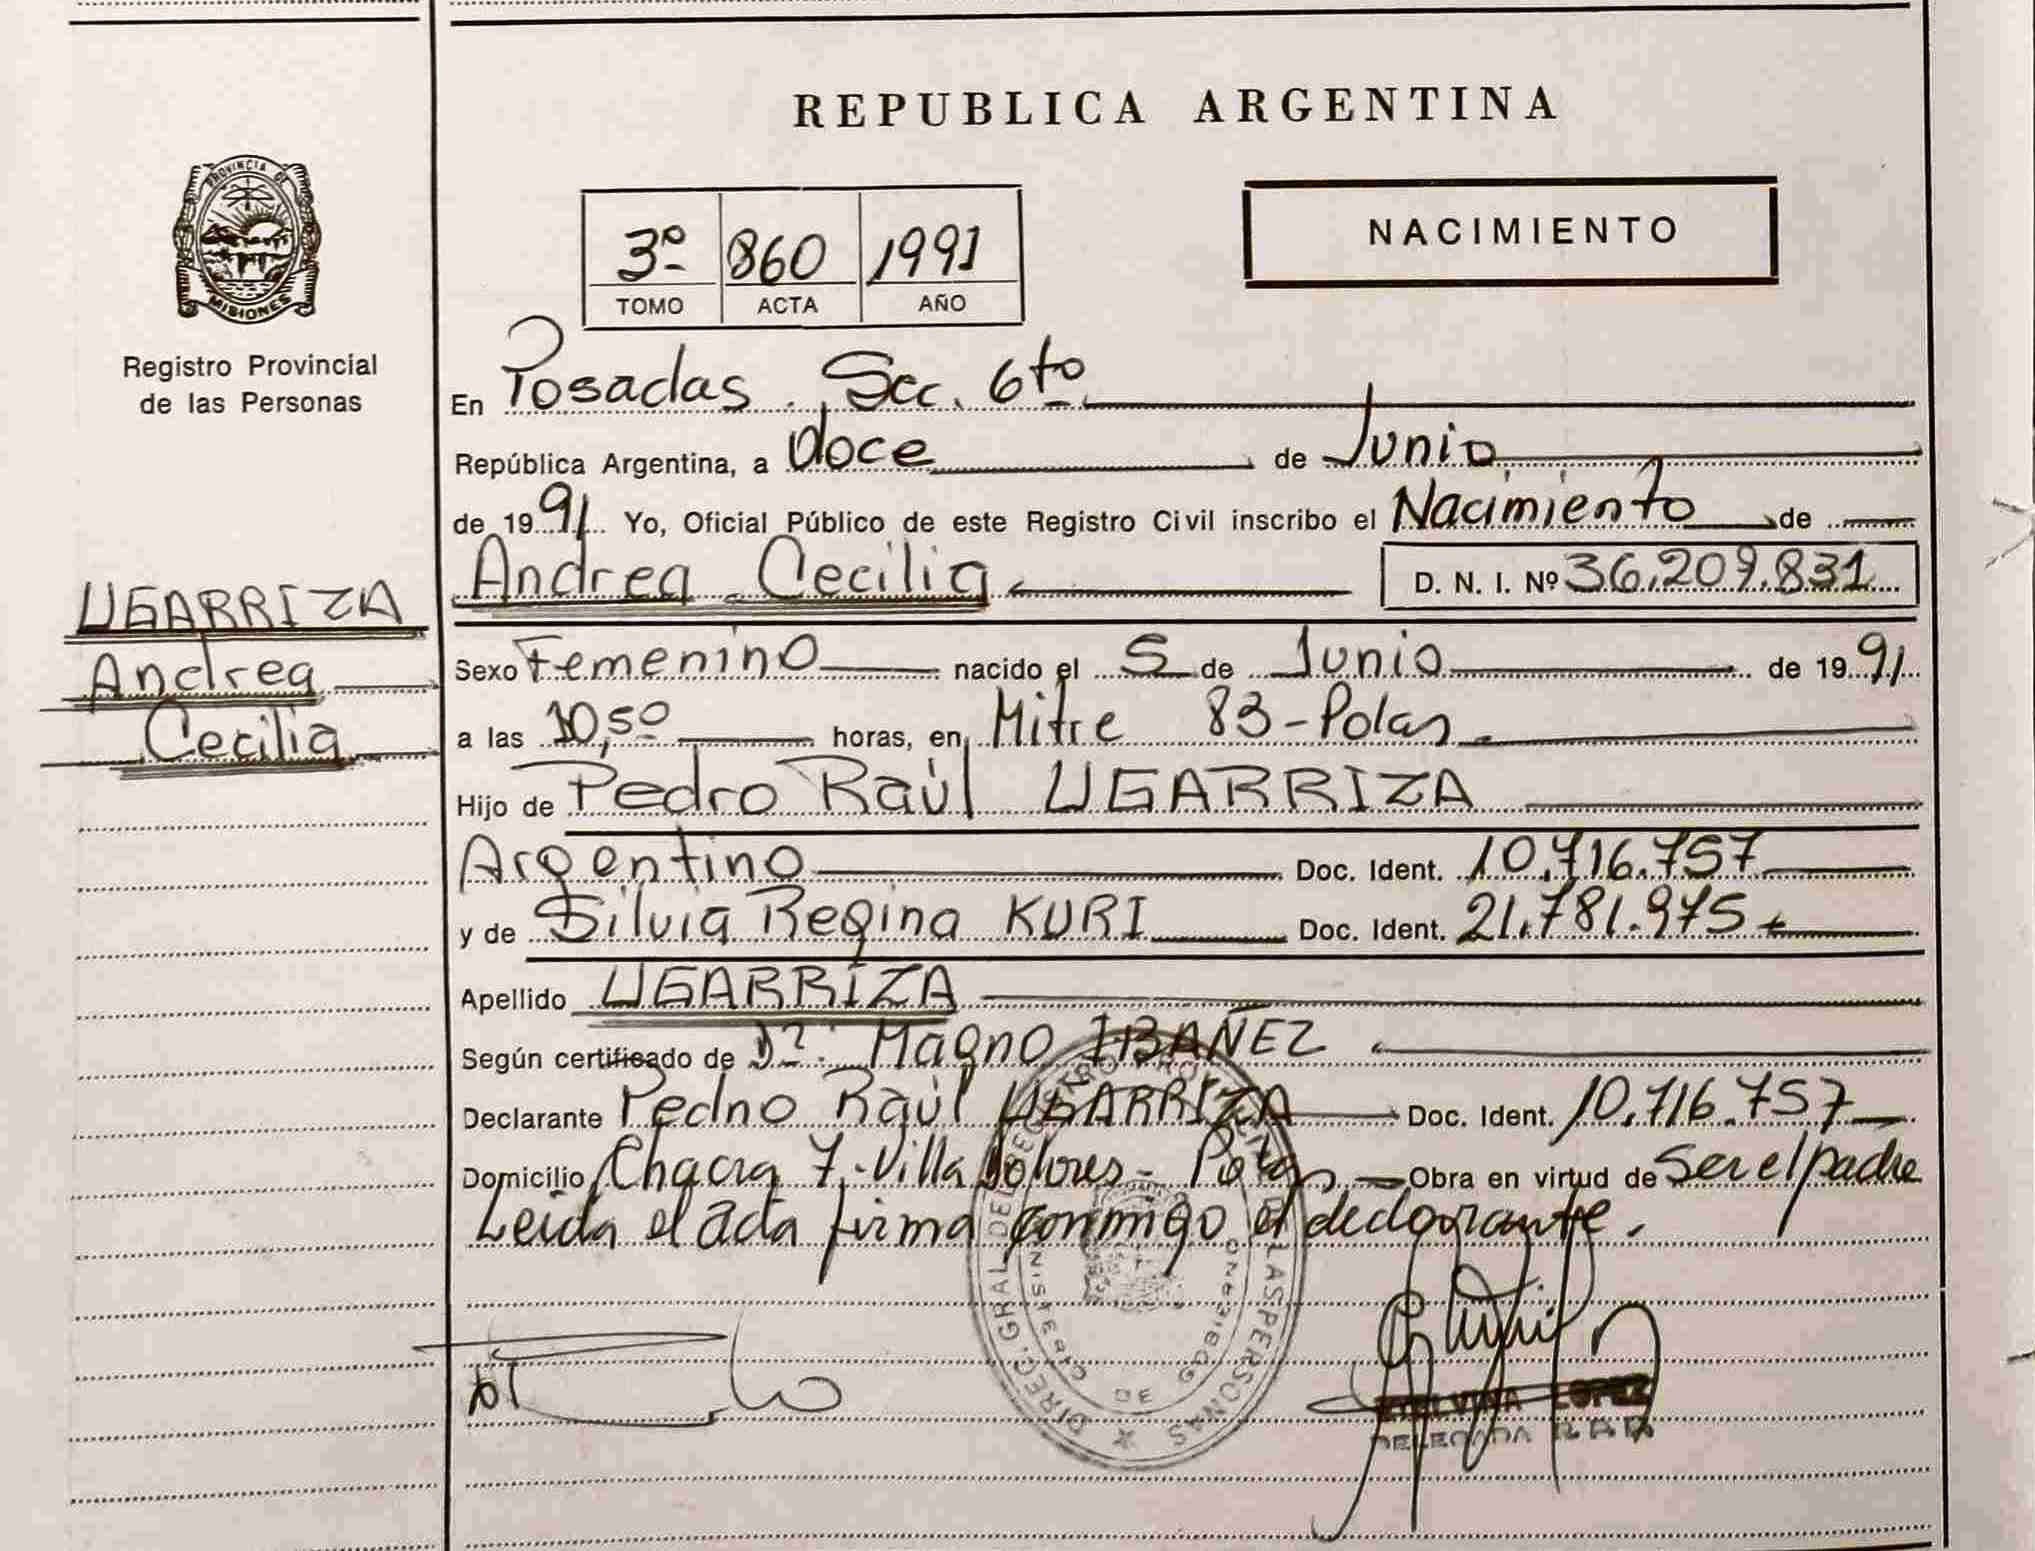 REPUBLICA ARGENTINA
PROVINCIA DE
MISIONES
Registro Provincial
de las Personas
3º 860 1991
TOMO ACTA AÑO
NACIMIENTO
En Posadas. Sec. 6to.
República Argentina, a doce de Junio
de 1991 Yo, Oficial Público de este Registro Civil inscribo el Nacimiento de
Andrea Cecilia. D. N. I. Nº 36.209.831
UGARRIZA
Andrea
Cecilia
Sexo Femenino nacido el 5 de Junio de 1991
a las 10,50 horas, en Mitre 83-Pdas.
Hijo de Pedro Raúl UGARRIZA
Argentino Doc. Ident. 10.716.757
y de Silvia Regina KURI Doc. Ident. 21.781.975
Apellido UGARRIZA
Según certificado de Dr. Magno IBAÑEZ.
Declarante Pedro Raúl UGARRIZA Doc. Ident. 10.716.757
Domicilio Chacra 7-Villa Dolores- Pdas, Obra en virtud de Ser el padre
Leida el acta firma conmigo el declarante.
DIREC. GRAL. DEL REGISTRO PROVINCIAL DE LAS PERSONAS
LOPEZ
DELEGADA R.P.P.